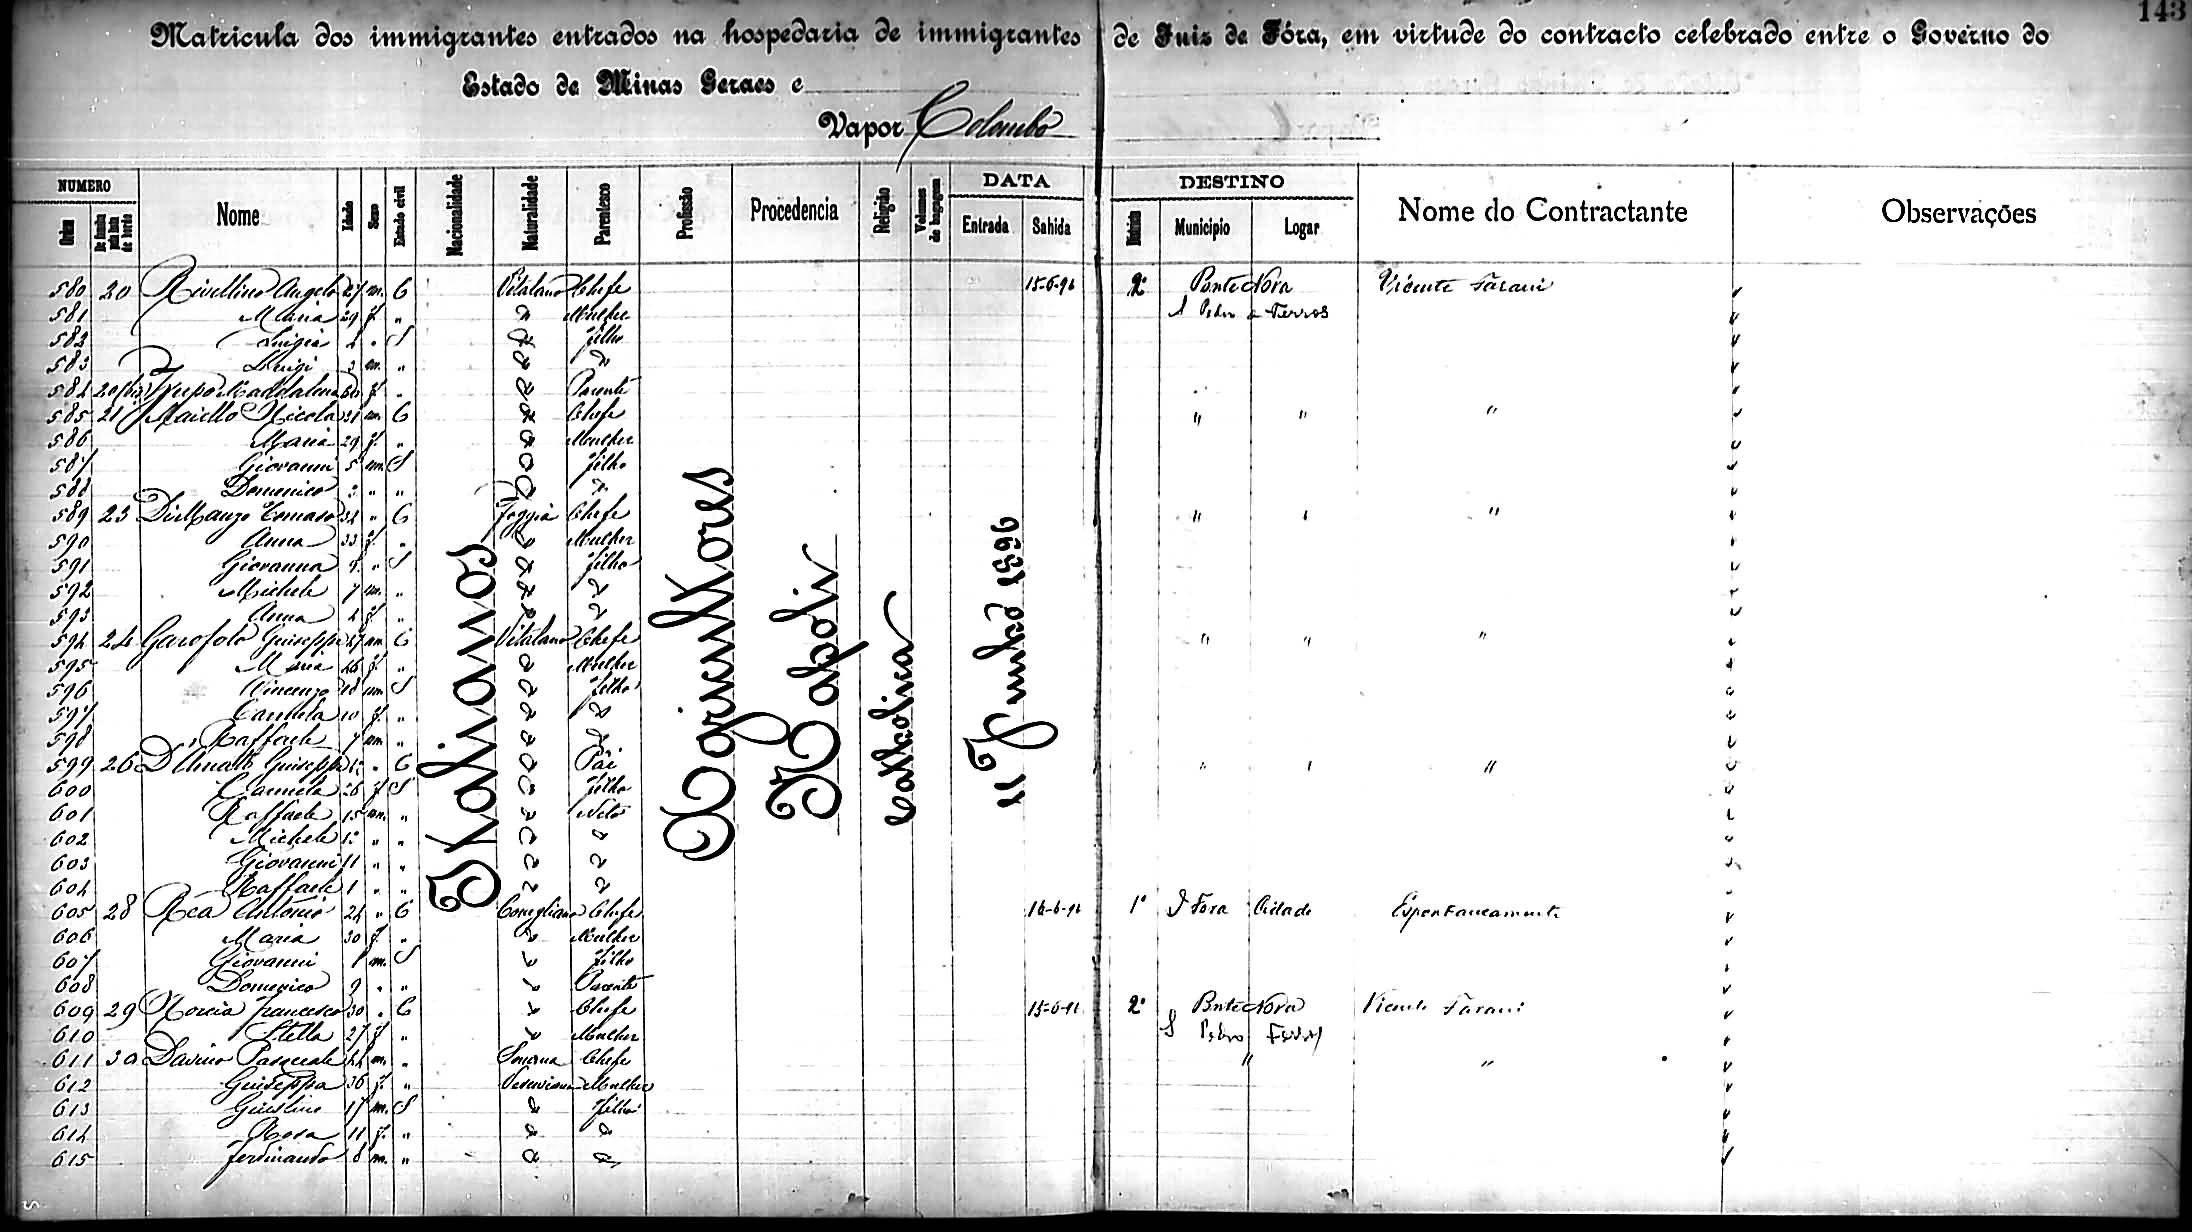 143
Matricula dos immigrantes entrados na hospedaria de immigrantes de Juiz de Fóra, em virtude do contracto celebrado entre o Governo do
Estado de Minas Geraes e
Vapor Colombo
NUMERO DATA DESTINO
Ordem Nome Idade Sexo Estado civil Nacionalidade Naturalidade Parentesco Profissão Procedencia Religião Volumes de bagagem Entrada Sahida Districto Municipio Logar Nome do Contractante Observações
Italianos
Agricultores
Napoli
Catholica
11 Junho 1896
580 20 Rivellino Angelo 27 m. C Vitulano Chefe 15-6-96 2º Ponte Nova Vicente Farani
581 Maria 29 f. " " Mulher S Pedro Ferros
582 Luigia 4 " S " filho
583 Luigi 3 m. " " "
584 20 bis Maddalena 60 f. " " Parente
585 21 Maiello Nicola 31 m. C " Chefe " " "
586 Maria 29 f. " " Mulher
587 Giovanni 5 m. S " filho
588 Domenico 2 " " " "
589 23 Di Manzo Tomaso 34 " C Foggia Chefe " " "
590 Anna 33 f. " " Mulher
591 Giovanna 9 " S " filho
592 Michele 7 m. " " "
593 Anna 4 f. " " "
594 24 Garofolo Guiseppe 47 m. C Vitulano Chefe " " "
595 Maria 46 f. " " Mulher
596 Vincenzo 18 m. S " filho
597 Carmela 10 f. " " "
598 Raffaele 7 m. " " "
599 26 D'Amato Guiseppe " C " Pai " " "
600 Carmela 26 f S " filho
601 Raffaele 15 m. " " Neto
602 Michele 12 " " " "
603 Giovanni 11 " " " "
604 Raffaele 1 " " " "
605 28 Rea Antonio 24 " C Conegliano Chefe 16-6-96 1º J Fora Cidade Espontaneamente
606 Maria 30 f. " " Mulher
607 Giovanni 1 m. S " filho
608 Domenico 9 " " " Parente
609 29 Norcia Francesco 30 " C " Chefe 15-6-96 2º Ponte Nova Vicente Farani
610 Stella 27 f " " Mulher S Pedro Ferros
611 30 Davino Pasquale 44 m. " Somma Chefe " "
612 Guiseppa 36 f. " Vesuviana Mulher
613 Giustino 17 m. S " filho
614 Rosa 11 f. " " "
615 Ferdinando 8 m. " " "